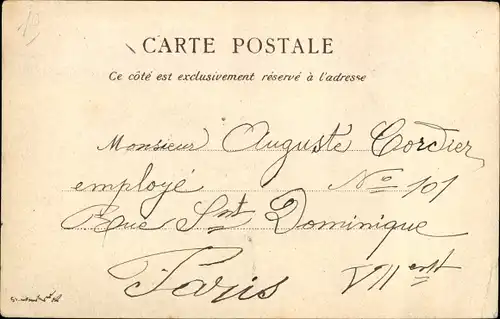 CARTE POSTALE
Ce côté est exclusivement réservé à l'adresse
Monsieur Auguste Cordier
employé No 101
Rue Snt Dominique
Paris VII